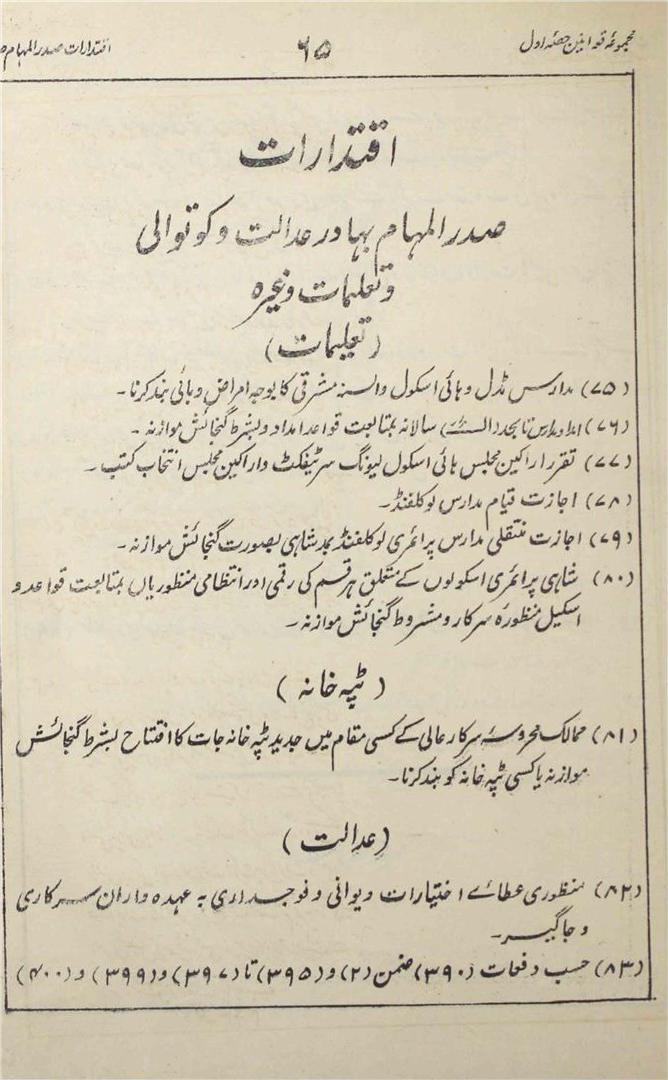 مجموعۂ قوانین حصّہ اول ۶۵ اقتدارات صدر المہام
اقتدارات
صدر المہام بہادر عدالت و کوتوالی
و تعلیمات وغیرہ
(تعلیمات)
(۷۵) مدارس مڈل و ہائی اسکول و السنہ مشرقی کا بوجہ امراض وبائی بند کرنا۔
(۷۶) امداد مدارس تا بحد سالانہ بمتابعت قواعد امداد و بشرط گنجائش موازنہ۔
(۷۷) تقرر اراکین مجلس ہائی اسکول لیونگ سرٹیفکٹ و اراکین مجلس انتخاب کتب۔
(۷۸) اجازت قیام مدارس لوکلفنڈ۔
(۷۹) اجازت منتقلی مدارس پرائمری لوکلفنڈ بمد شاہی بصورت گنجائش موازنہ۔
(۸۰) شاہی پرائمری اسکولوں کے متعلق ہر قسم کی رقمی اور انتظامی منظوریاں بمتابعت قواعد و
اسکیل منظورہ سرکار و مشروط گنجائش موازنہ۔
(ٹپہ خانہ)
(۸۱) ممالک محروسہ سرکار عالی کے کسی مقام میں جدید ٹپہ خانہ جات کا افتتاح بشرط گنجائش
موازنہ یا کسی ٹپہ خانہ کو بند کرنا۔
(عدالت)
(۸۲) منظوری عطائے اختیارات دیوانی و فوجداری بہ عہدہ داران سرکاری
و جاگیر۔
(۸۳) حسب دفعات (۳۹۰) ضمن (۲) و (۳۹۵) تا (۳۹۷) و (۳۹۹) و (۴۰۰)